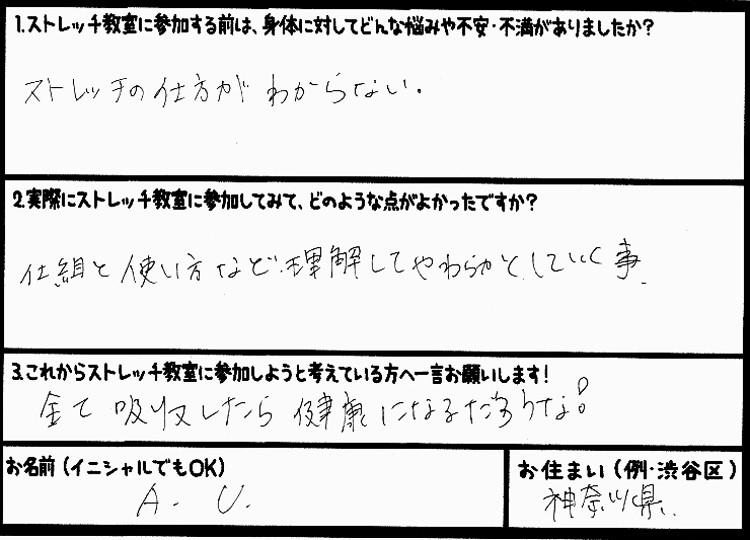 1.ストレッチ教室に参加する前は、身体に対してどんな悩みや不安・不満がありましたか？
ストレッチの仕方が わからない.
2.実際にストレッチ教室に参加してみて、どのような点がよかったですか？
仕組と使い方など理解してやわらかくしていく事.
3.これからストレッチ教室に参加しようと考えている方へ一言お願いします！
全て 吸収したら 健康になるだろうな!
お名前（イニシャルでもOK）
A. U.
お住まい（例・渋谷区）
神奈川県.